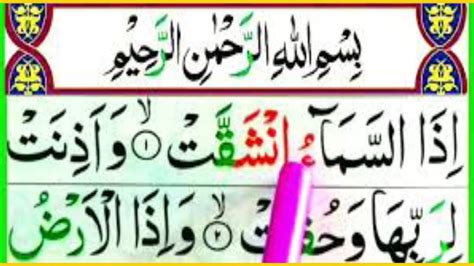 بِسْمِ اللهِ الرَّحْمٰنِ الرَّحِيْمِ
اِذَا السَّمَآءُ انْشَقَّتْ ۙ﴿۱﴾ وَاَذِنَتْ
لِرَبِّهَا وَحُقَّتْ ۙ﴿۲﴾ وَاِذَا الْاَرْضُ